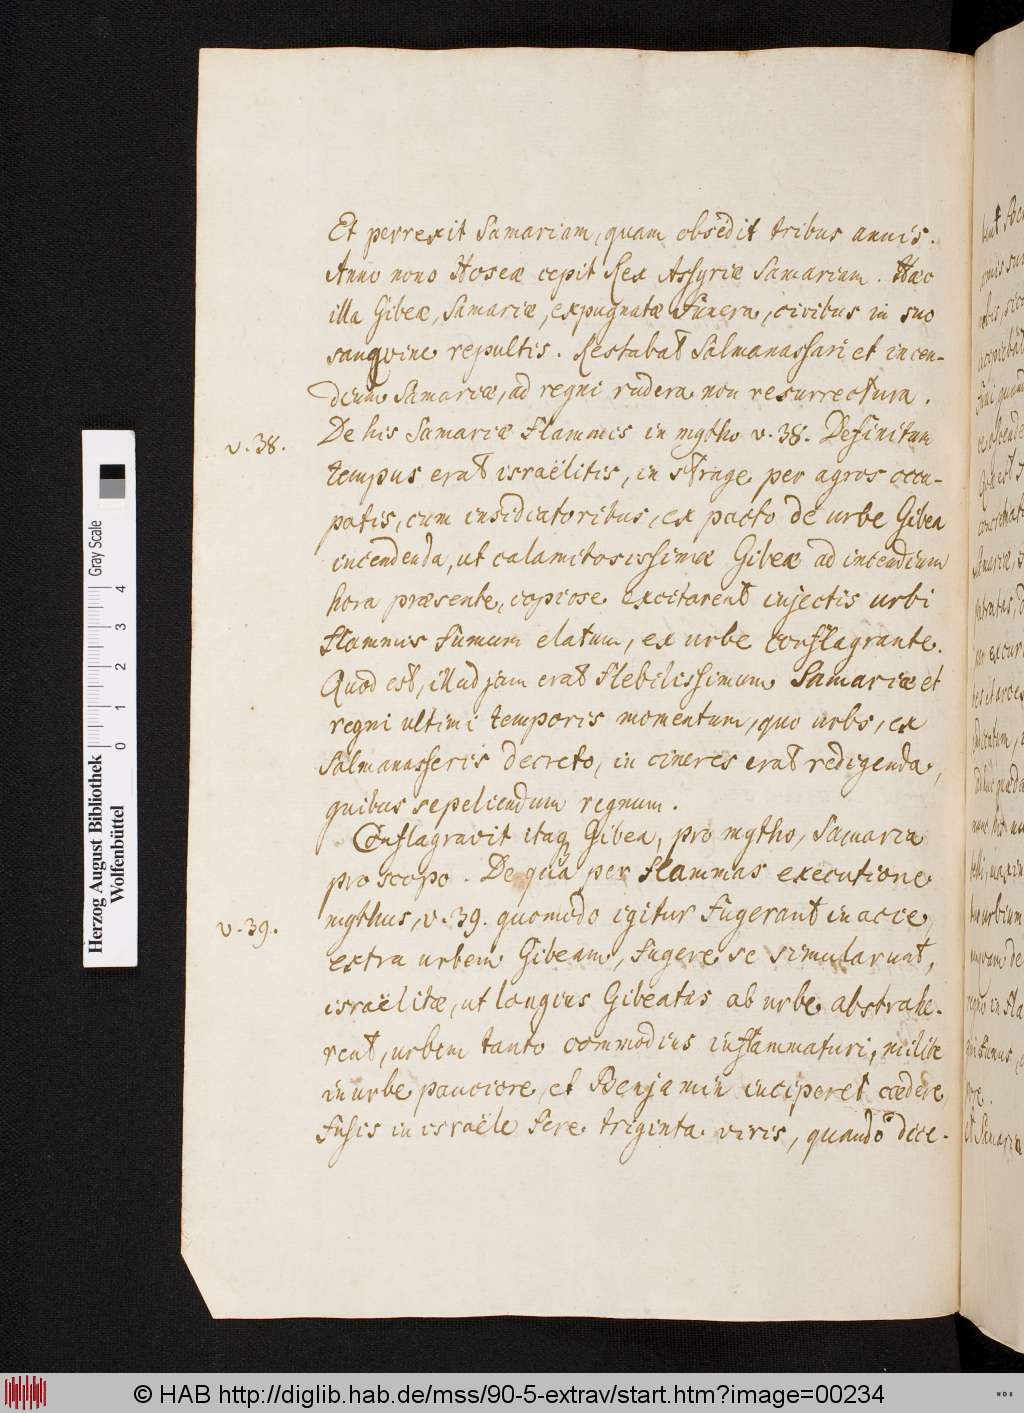 Et perrexit Samariam, quam obsedit tribus annis.
Anno nono Hoseæ cepit Rex Assyriæ Samariam. Hæc
illa Gibeæ, Samariæ, expugnatæ funera, civibus in suo
sanquine repultis. Restabat Salmanassari et incen-
dium Samariæ, ad regni rudera non resurrectura.
v. 38. De his Samariæ flammis in mytho v. 38. Definitum
tempus erat israëlitis, in strage per agros occu-
patis, cum insidiatoribus, ex pacto de urbe Gibea
incendenda, ut calamitosissimæ Gibeæ ad incendium
hora præsente, copiose excitarent injectis urbi
flammis fumum elatum, ex urbe conflagrante.
Quod est, illud jam erat flebilissimum Samariæ et
regni ultimi temporis momentum, quo urbs, ex
Salmanasseris decreto, in cineres erat redigenda,
quibus sepeliendum regnum.
Conflagravit itaq Gibea, pro mytho, Samaria
pro scopo. De quâ per flammas executione
v. 39. mythus, v. 39. quomodo igitur fugerant in acie,
extra urbem Gibeam, fugere se simularunt,
israëlitæ, ut longius Gibeatas ab urbe abstrahe-
rent, urbem tanto commodius inflammaturi, milite
in urbe pauciore, et Benjamin inciperet cædere,
fusis in israële fere triginta viris, quando dice-
Herzog August Bibliothek
Wolfenbüttel
Gray Scale
0 1 2 3 4
© HAB http://diglib.hab.de/mss/90-5-extrav/start.htm?image=00234